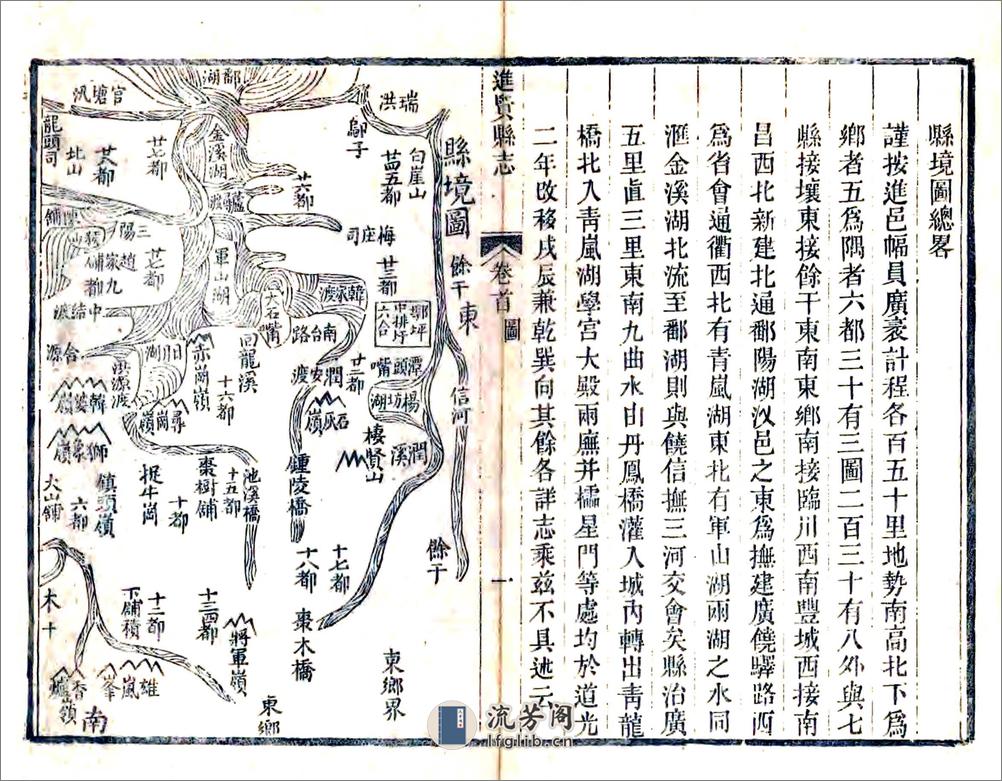 縣境圖總畧
謹按進邑幅員廣袤計程各百五十里地勢南高北下爲
鄉者五爲隅者六都三十有三圖二百三十有八外與七
縣接壤東接餘干東南東鄉南接臨川西南豐城西接南
昌西北新建北通鄱陽湖汊邑之東爲撫建廣饒驛路西
爲省會通衢西北有青嵐湖東北有軍山湖兩湖之水同
滙金溪湖北流至鄱湖則與饒信撫三河交會矣縣治廣
五里直三里東南九曲水由丹鳳橋灌入城內轉出青龍
橋北入青嵐湖學宮大殿兩廡并櫺星門等處均於道光
二年改移戌辰兼乾巽向其餘各詳志乘茲不具述云
進賢縣志
卷首
圖
一
縣境圖
東
餘干
信河
餘干
瑞洪
鄔子
白崖山
梅庄司
廿三都
韓家渡
南台路
潭頭嘴
楊坊湖
潤溪
棲賢山
石灰嶺
廿二都
潤安渡
鍾陵橋
十七都
十八都
棗木橋
東鄉界
東鄉
鄱湖
金溪湖
廿六都
軍山湖
大石嘴
回龍溪
赤崗嶺
十六都
日月湖
尋崗嶺
池溪橋
十五都
棗樹鋪
捉牛崗
十都
官塘汛
龍頭司
北山
廿七都
三陽
趙家鋪
洪源渡
韓婆嶺
獅象嶺
鎮頭嶺
六都
火山鋪
十三四都
將軍嶺
十二都
下鋪積
雄嵐峯
香爐嶺
南
木
十
流芳阁
lfglib.cn